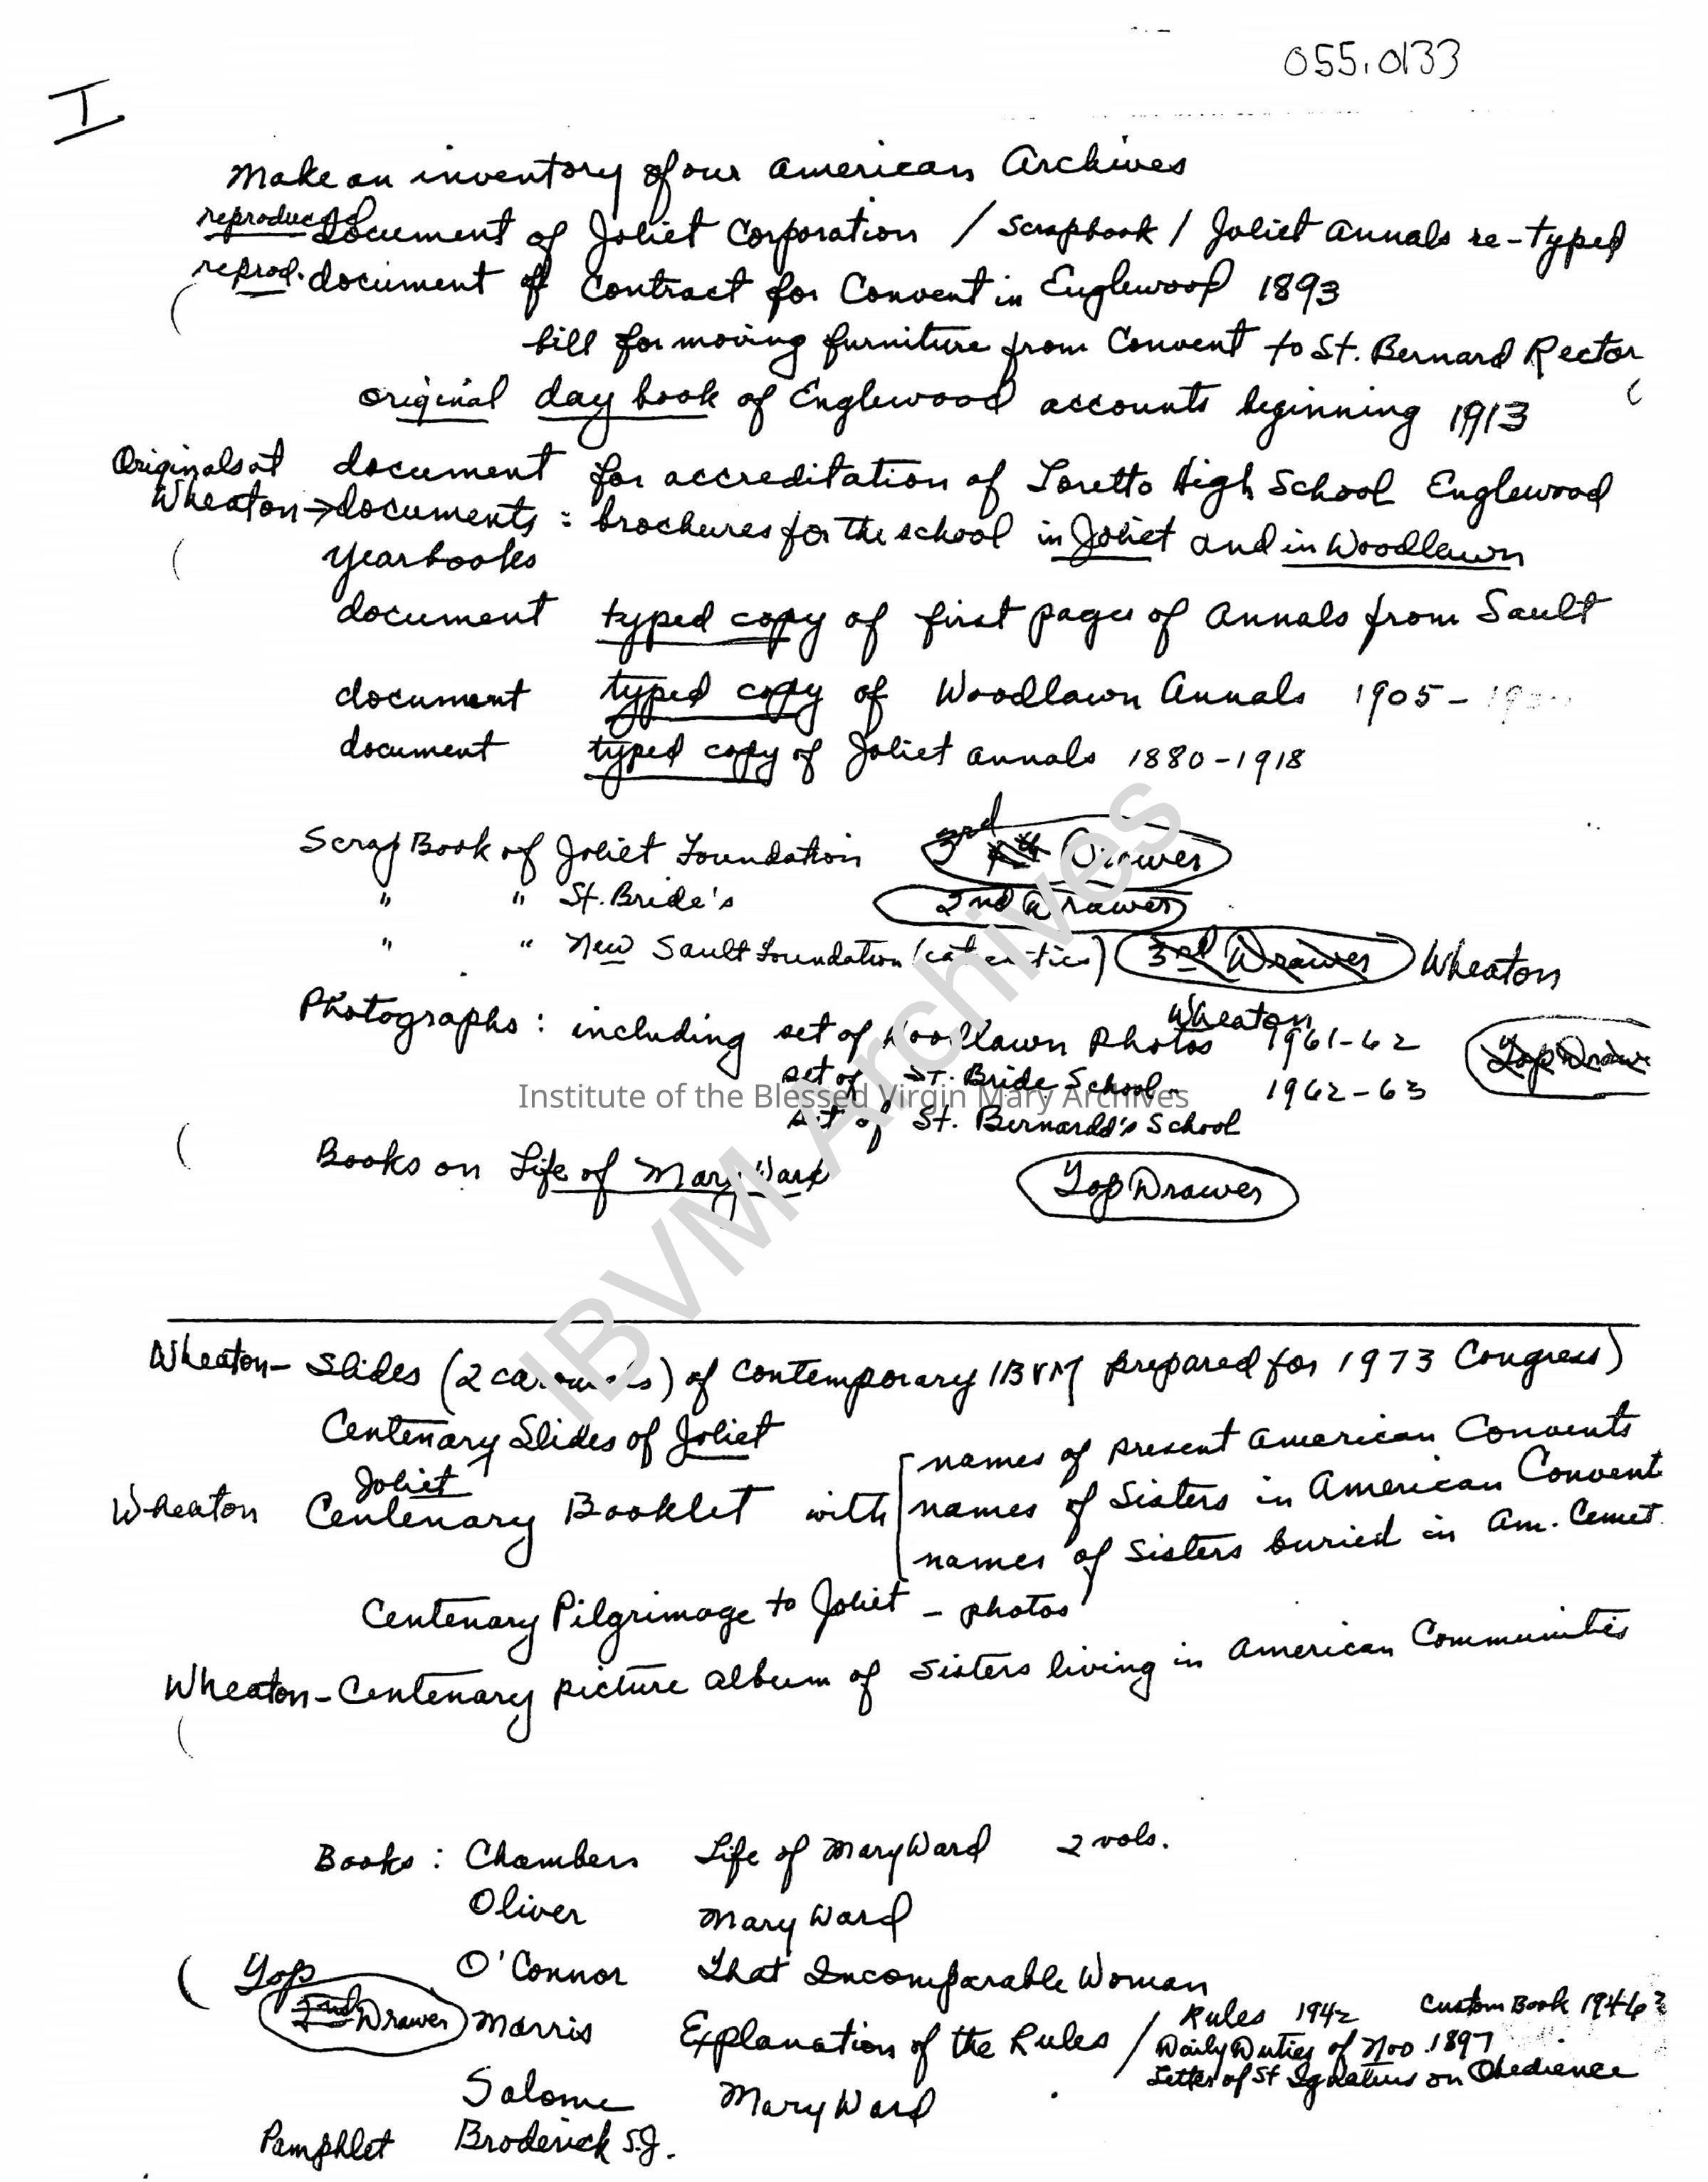 055.0133
I
Make an inventory of our American Archives
reproduced document of Joliet Corporation / Scrapbook / Joliet Annals re-typed
reprod. document of Contract for Convent in Englewood 1893
bill for moving furniture from Convent to St. Bernard Rector
original day book of Englewood accounts beginning 1913
Originals at document for accreditation of Loretto High School Englewood
Wheaton → documents : brochures for the school in Joliet and in Woodlawn
Yearbooks
document typed copy of first pages of Annals from Sault
document typed copy of Woodlawn Annals 1905 -
document typed copy of Joliet Annals 1880-1918
Scrap Book of Joliet Foundation 3rd Drawer
" " St. Bride's 2nd Drawer
" " New Sault Foundation 3rd Drawer Wheaton
Wheaton
Photographs : including set of Woodlawn Photos 1961-62 Top Draw
set of St. Bride School " 1962-63
Institute of the Blessed Virgin Mary Archives
set of St. Bernard's School
Books on Life of Mary Ward Top Drawer
IBVM Archives
Wheaton - Slides (2 carousels) of contemporary IBVM prepared for 1973 Congress)
Centenary Slides of Joliet
names of present American Convents
Joliet
Wheaton Centenary Booklet with names of Sisters in American Convent
names of Sisters buried in Am. Cemet.
Centenary Pilgrimage to Joliet - photos
Wheaton - Centenary picture album of Sisters living in American Communities
Books : Chambers Life of Mary Ward 2 vols.
Oliver Mary Ward
Top O'Connor That Incomparable Woman
2nd Drawer Morris Explanation of the Rules / Rules 1942 Custom Book 1946?
Daily Duties of Nov. 1897
Letter of St Ignatius on Obedience
Salome Mary Ward
Pamphlet Broderick S.J.